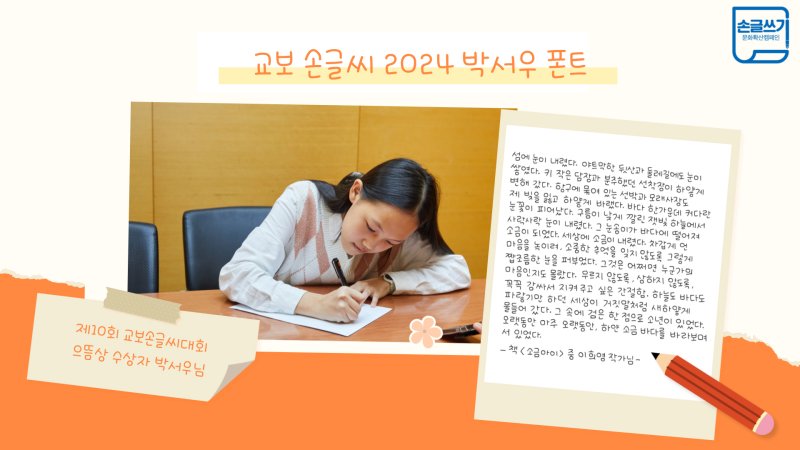 손글쓰기
문화확산캠페인
교보 손글씨 2024 박서우 폰트
섬에 눈이 내렸다. 야트막한 뒷산과 둘레길에도 눈이
쌓였다. 키 작은 담장과 분주했던 선착장이 하얗게
변해 갔다. 항구에 묶여 있는 선박과 모래사장도
제 빛을 잃고 하얗게 바랬다. 바다 한가운데 커다란
눈꽃이 피어났다. 구름이 낮게 깔린 잿빛 하늘에서
사락사락 눈이 내렸다. 그 눈송이가 바다에 떨어져
소금이 되었다. 세상에 소금이 내렸다. 차갑게 언
마음을 녹이려, 소중한 추억을 잊지 않도록 그렇게
짭조름한 눈을 퍼부었다. 그것은 어쩌면 누군가의
마음인지도 몰랐다. 무르지 않도록, 상하지 않도록,
꼭꼭 감싸서 지켜주고 싶은 간절함. 하늘도 바다도
파랗기만 하던 세상이 거짓말처럼 새하얗게
물들어 갔다. 그 곳에 검은 한 점으로 소년이 있었다.
오랫동안 아주 오랫동안, 하얀 소금 바다를 바라보며
서 있었다.
- 책 <소금아이> 중 이희영 작가님-
제10회 교보손글씨대회
으뜸상 수상자 박서우님